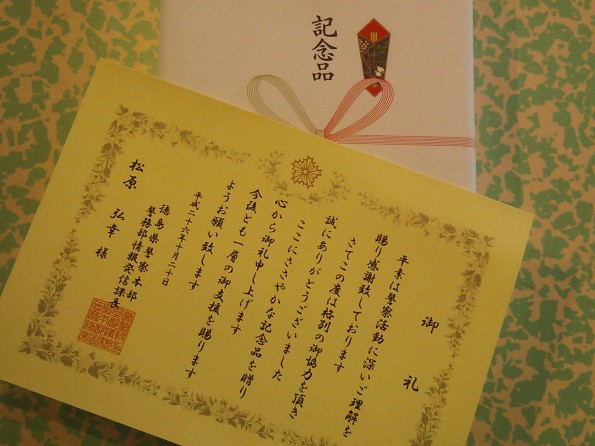 記念品
御礼
平素は警察活動に深いご理解を
賜り感謝致しております
さてこの度は格別の御協力を頂き
誠にありがとうございました
ここにささやかな記念品を贈り
心から御礼申し上げます
今後とも一層の御支援を賜ります
ようお願い致します
平成二十六年十月二十日
徳島県警察本部
警務部情報発信課長
松原 弘幸 様